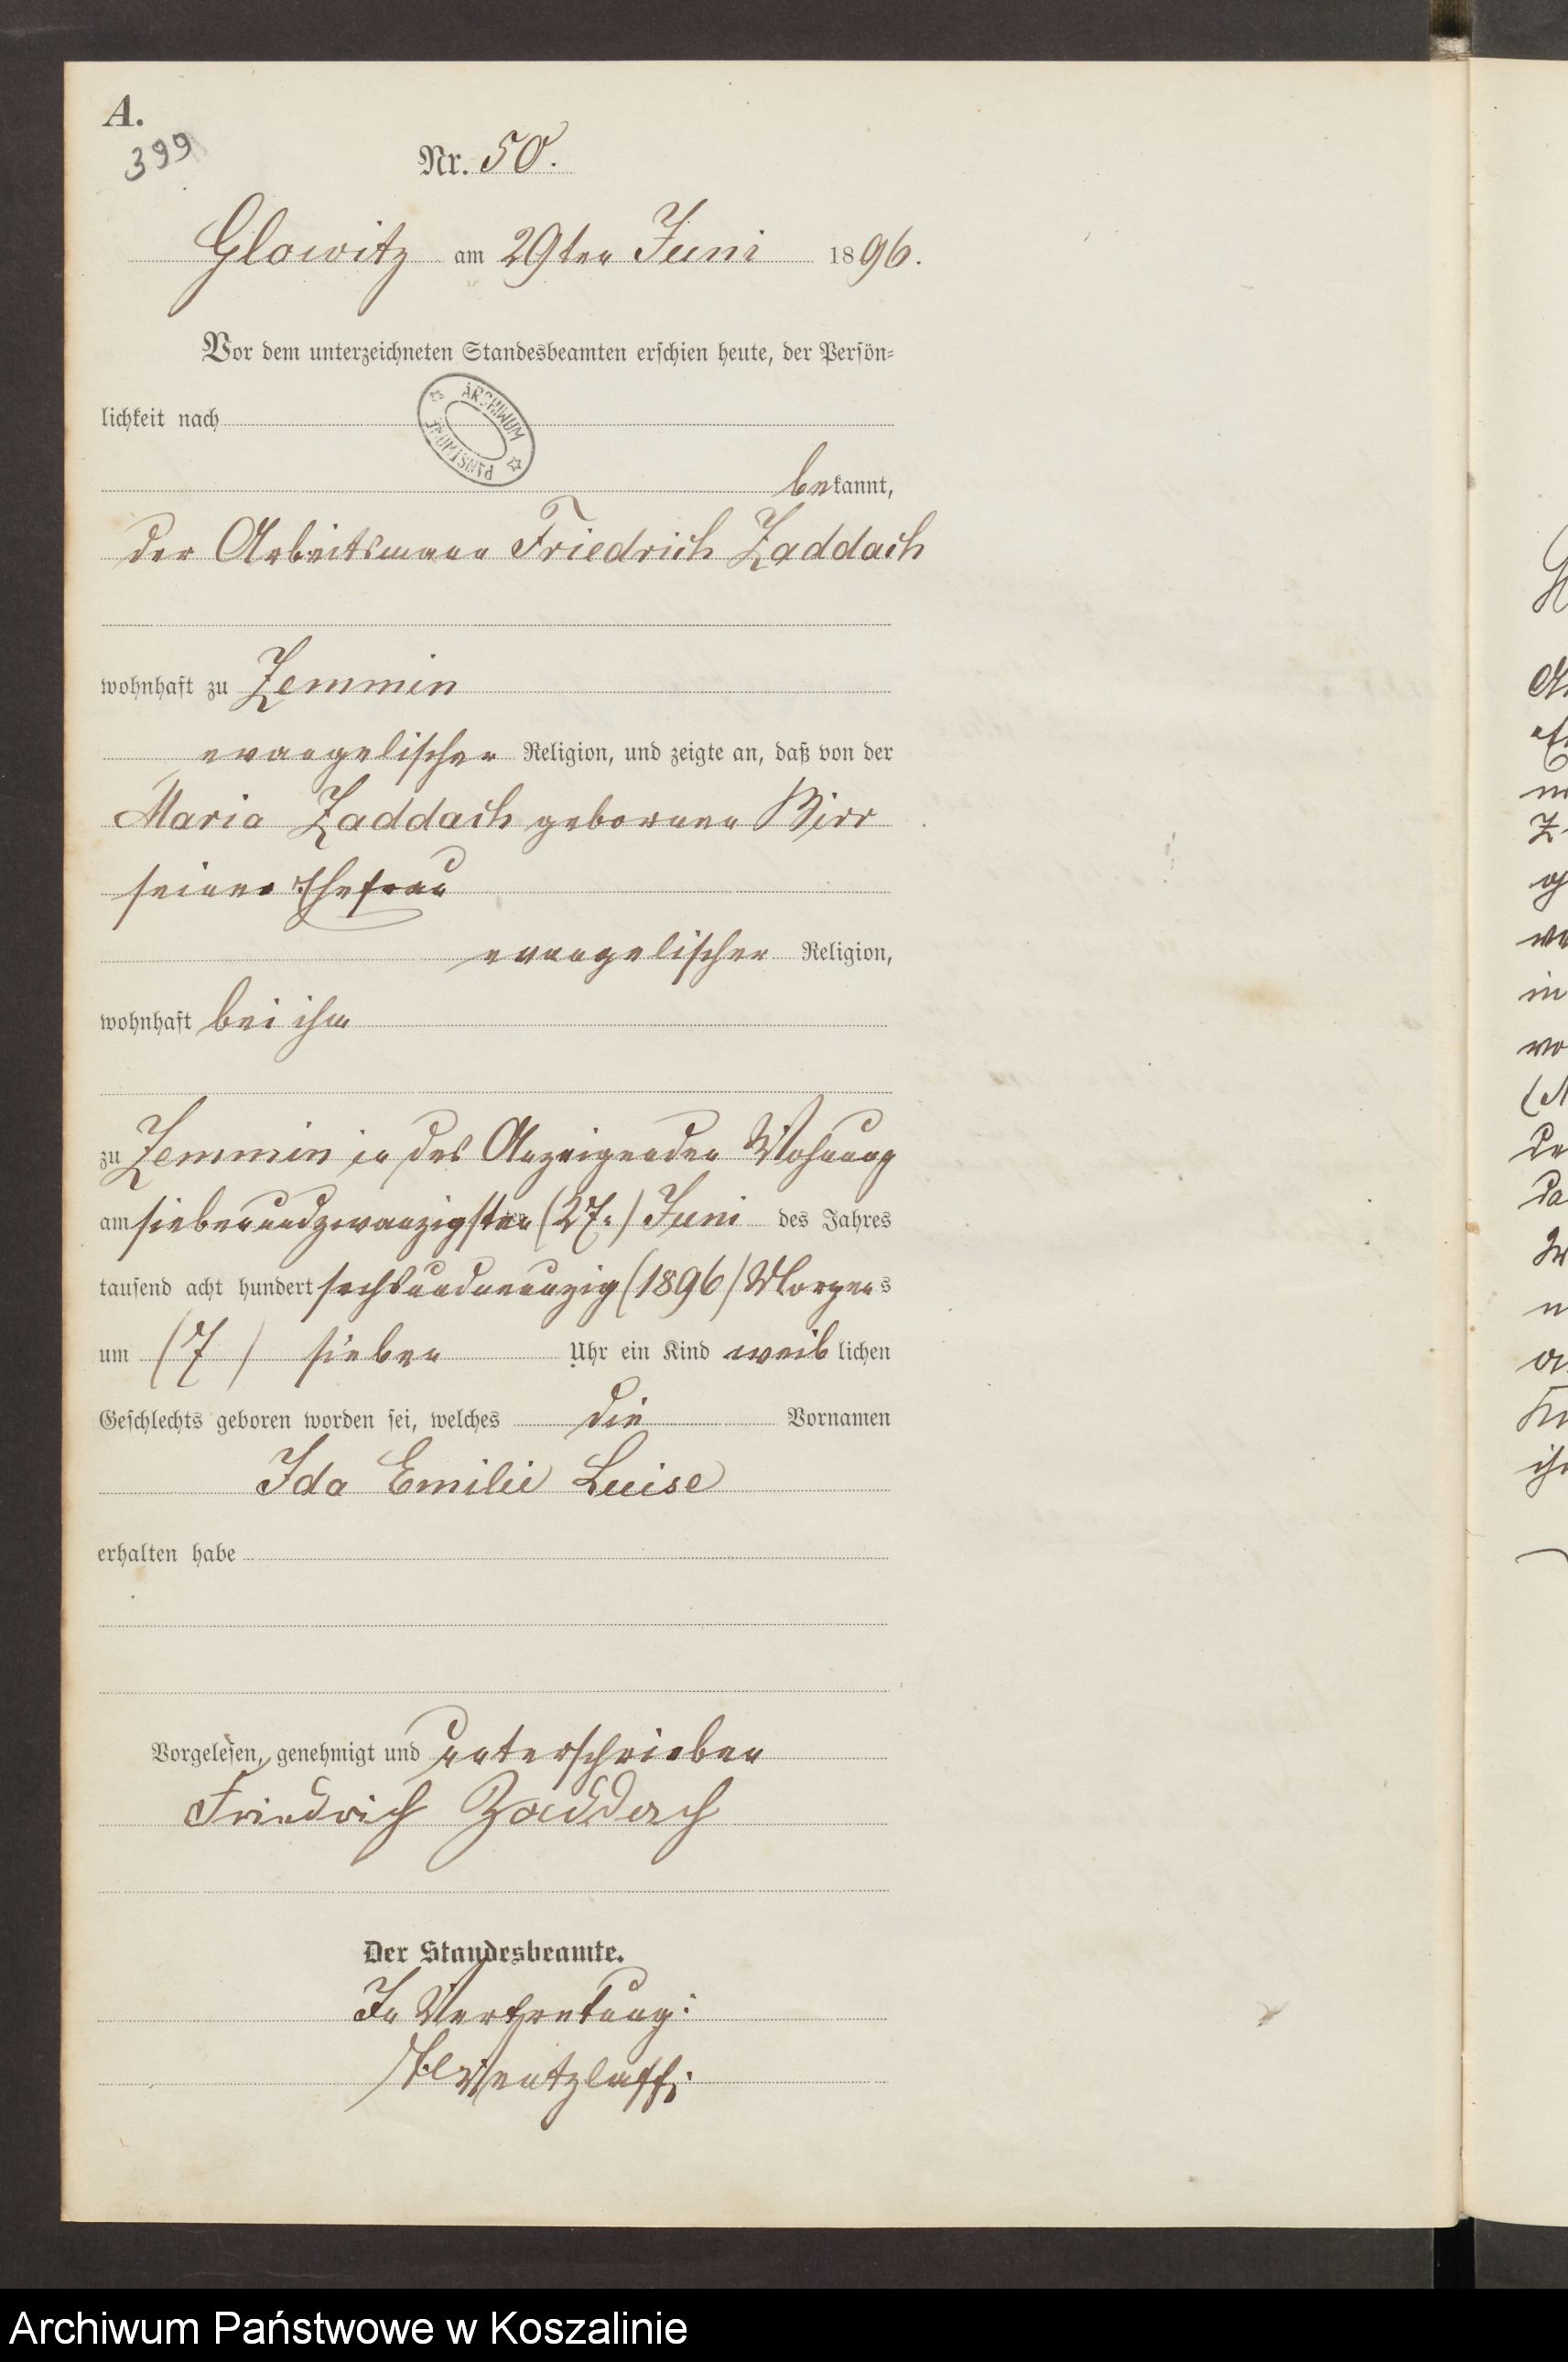 A.
399
Nr. 50.
Glowitz am 29ten Juni 1896.
Vor dem unterzeichneten Standesbeamten erschien heute, der Persön-
lichkeit nach
ARCHIWUM PAŃSTWOWE
bekannt,
der Arbeitsmann Friedrich Zaddach
wohnhaft zu Zemmin
evangelischer Religion, und zeigte an, daß von der
Maria Zaddach gebornen Birr
seiner Ehefrau
evangelischer Religion,
wohnhaft bei ihm
zu Zemmin in des Anzeigenden Wohnung
am siebenundzwanzigsten (27.) Juni des Jahres
tausend acht hundert sechsundneunzig (1896) Morgens
um (7) sieben Uhr ein Kind weiblichen
Geschlechts geboren worden sei, welches die Vornamen
Ida Emilie Luise
erhalten habe
Vorgelesen, genehmigt und unterschrieben
Friedrich Zaddach
Der Standesbeamte.
In Vertretung:
Wentzlaff.
Archiwum Państwowe w Koszalinie